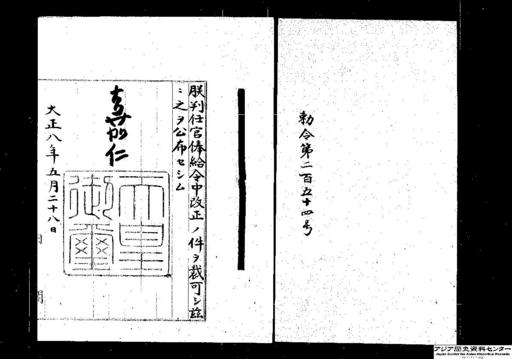 勅令第二百五十四号
朕判任官俸給令中改正ノ件ヲ裁可シ茲
ニ之ヲ公布セシム
嘉仁
天皇
御璽
大正八年五月二十八日
アジア歴史資料センター
Japan Center for Asian Historical Records